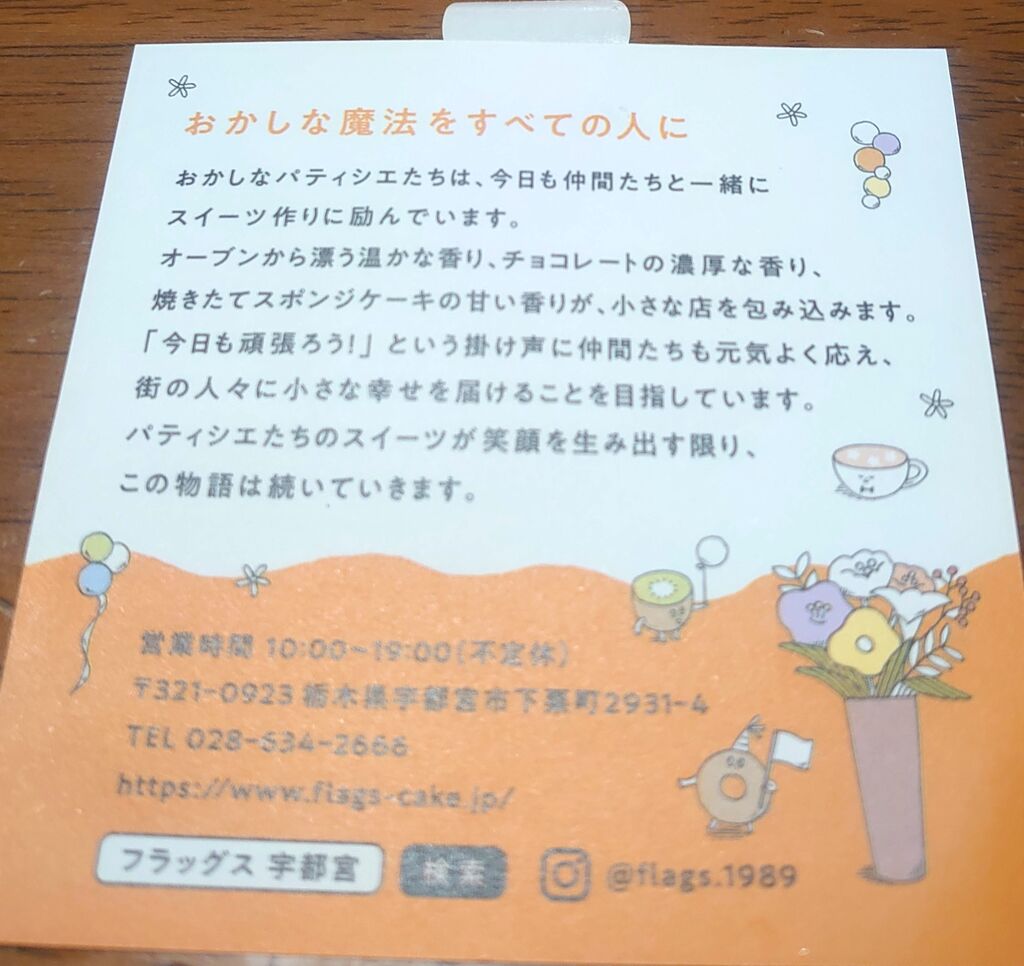 おかしな魔法をすべての人に
おかしなパティシエたちは、今日も仲間たちと一緒に
スイーツ作りに励んでいます。
オーブンから漂う温かな香り、チョコレートの濃厚な香り、
焼きたてスポンジケーキの甘い香りが、小さな店を包み込みます。
「今日も頑張ろう!」という掛け声に仲間たちも元気よく応え、
街の人々に小さな幸せを届けることを目指しています。
パティシエたちのスイーツが笑顔を生み出す限り、
この物語は続いていきます。
営業時間 10:00~19:00(不定休)
〒321-0923 栃木県宇都宮市下栗町2931-4
TEL 028-634-2666
https://www.flags-cake.jp/
フラッグス 宇都宮 検索 @flags.1989